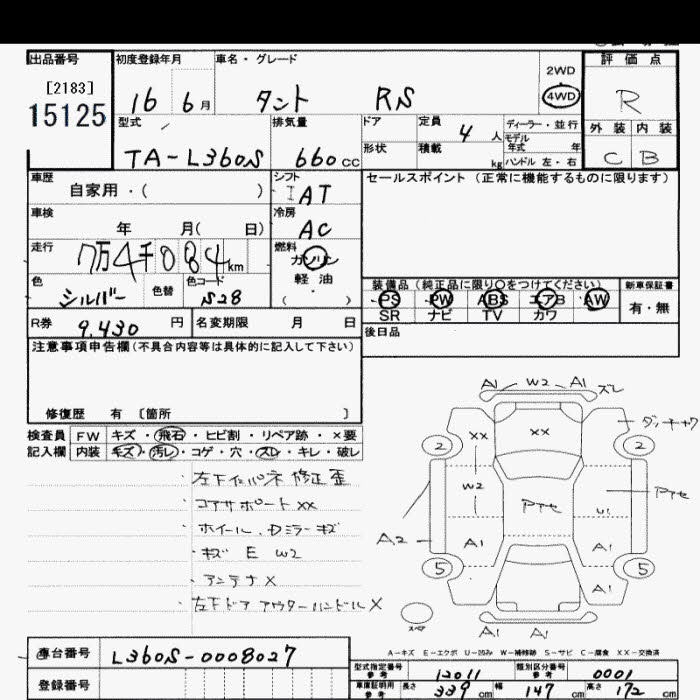 出品番号 初度登録年月 車名・グレード 評価点
[2183] 2WD
15125 16 6月 タント RS 4WD R
型式 排気量 ドア 定員 4人 ディーラー・並行 外装 内装
形状 積載 kg モデル年式 年
TA-L360S 660cc ハンドル 左・右 C B
車歴 シフト セールスポイント (正常に機能するものに限ります)
自家用・( ) IAT
車検 冷房
年 月( 日) AC
走行 燃料
7万4千084km ガソリン
色 色替 色コード 軽油
シルバー S28 ( )
装備品(純正品に限り○をつけてください) 新車保証書
PS PW ABS エアB AW 有・無
SR ナビ TV カワ
R券 9,430円 名変期限 月 日 後日品
注意事項申告欄(不具合内容等は具体的に記入して下さい)
修復歴 有 〔箇所 〕
検査員 FW キズ・飛石・ヒビ割・リペア跡・×要
記入欄 内装 キズ・汚レ・コゲ・穴・スレ・キレ・破レ
左下インパネ 修正歪
コアサポート XX
ホイール、Dミラーキズ
キズ E W2
アンテナ X
左下ドア アウターハンドル X
A1 W2 A1 ズレ
XX XX
2 2
W2 Pアセ Pアセ
U1
A2 A1 A1
5 5
A1
スペア A1 A1
A-キズ E-エクボ U-凹み W-補修跡 S-サビ C-腐食 XX-交換済
車台番号 L360S-0008027
登録番号
型式指定番号 参考 12011 類別区分番号 参考 0001
車庫証明用 参考 長さ 339cm 幅 147cm 高さ 172cm